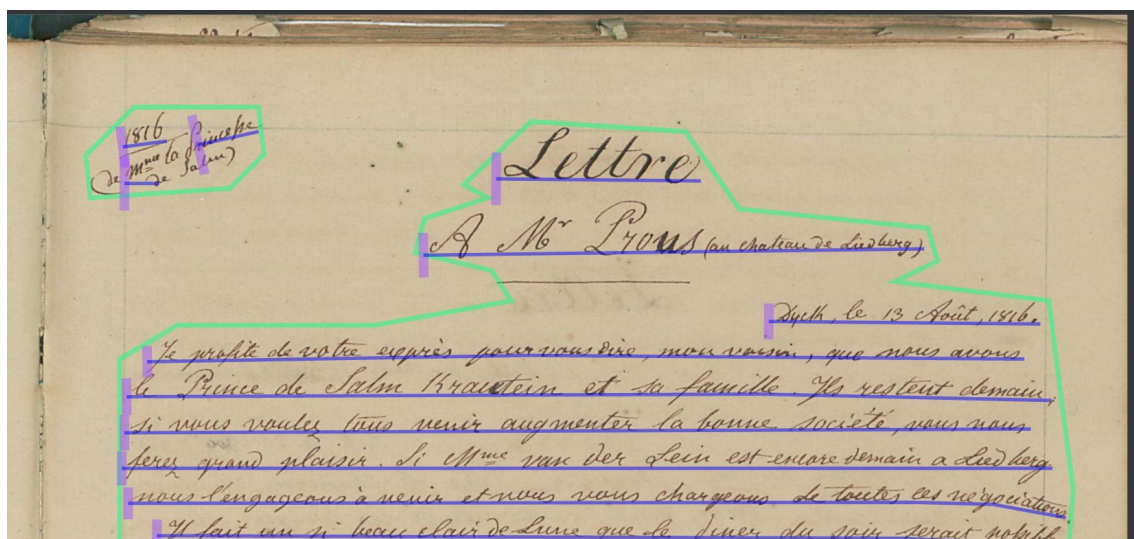 1816
(de Mme la Princesse
de Salm)
Lettre
A Mr Prous (au chateau de Liedberg)
Dyck, le 13 Août, 1816.
Je profite de votre exprès pour vous dire, mon voisin, que nous avons
le Prince de Salm Krautein et sa famille. Ils restent demain,
si vous voulez tous venir augmenter la bonne société, vous nous
ferez grand plaisir. Si Mme van der Lein est encore demain a Liedberg
nous l'engageons à venir et nous vous chargeons de toutes ces négociations.
Il fait un si beau clair de Lune que le diner du soir serait